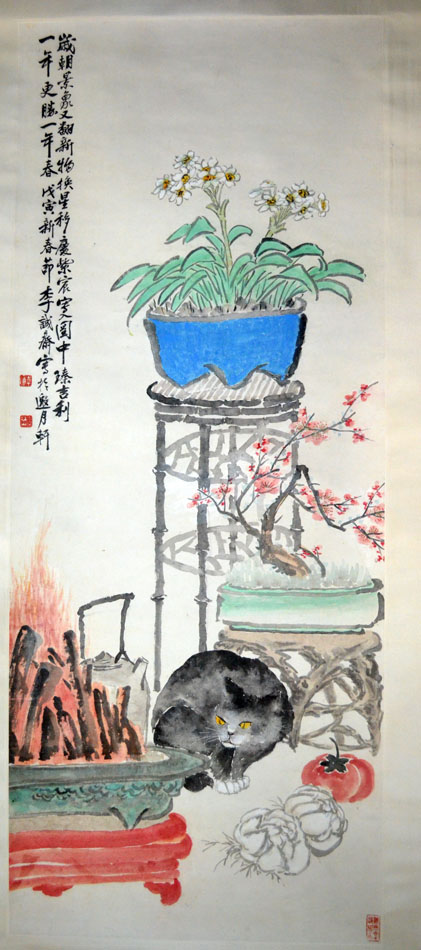 歲朝景象又翻新物換星移慶紫宸寔閣中臻吉利
一年更勝一年春戊寅新春節李誠齋寫於邀月軒